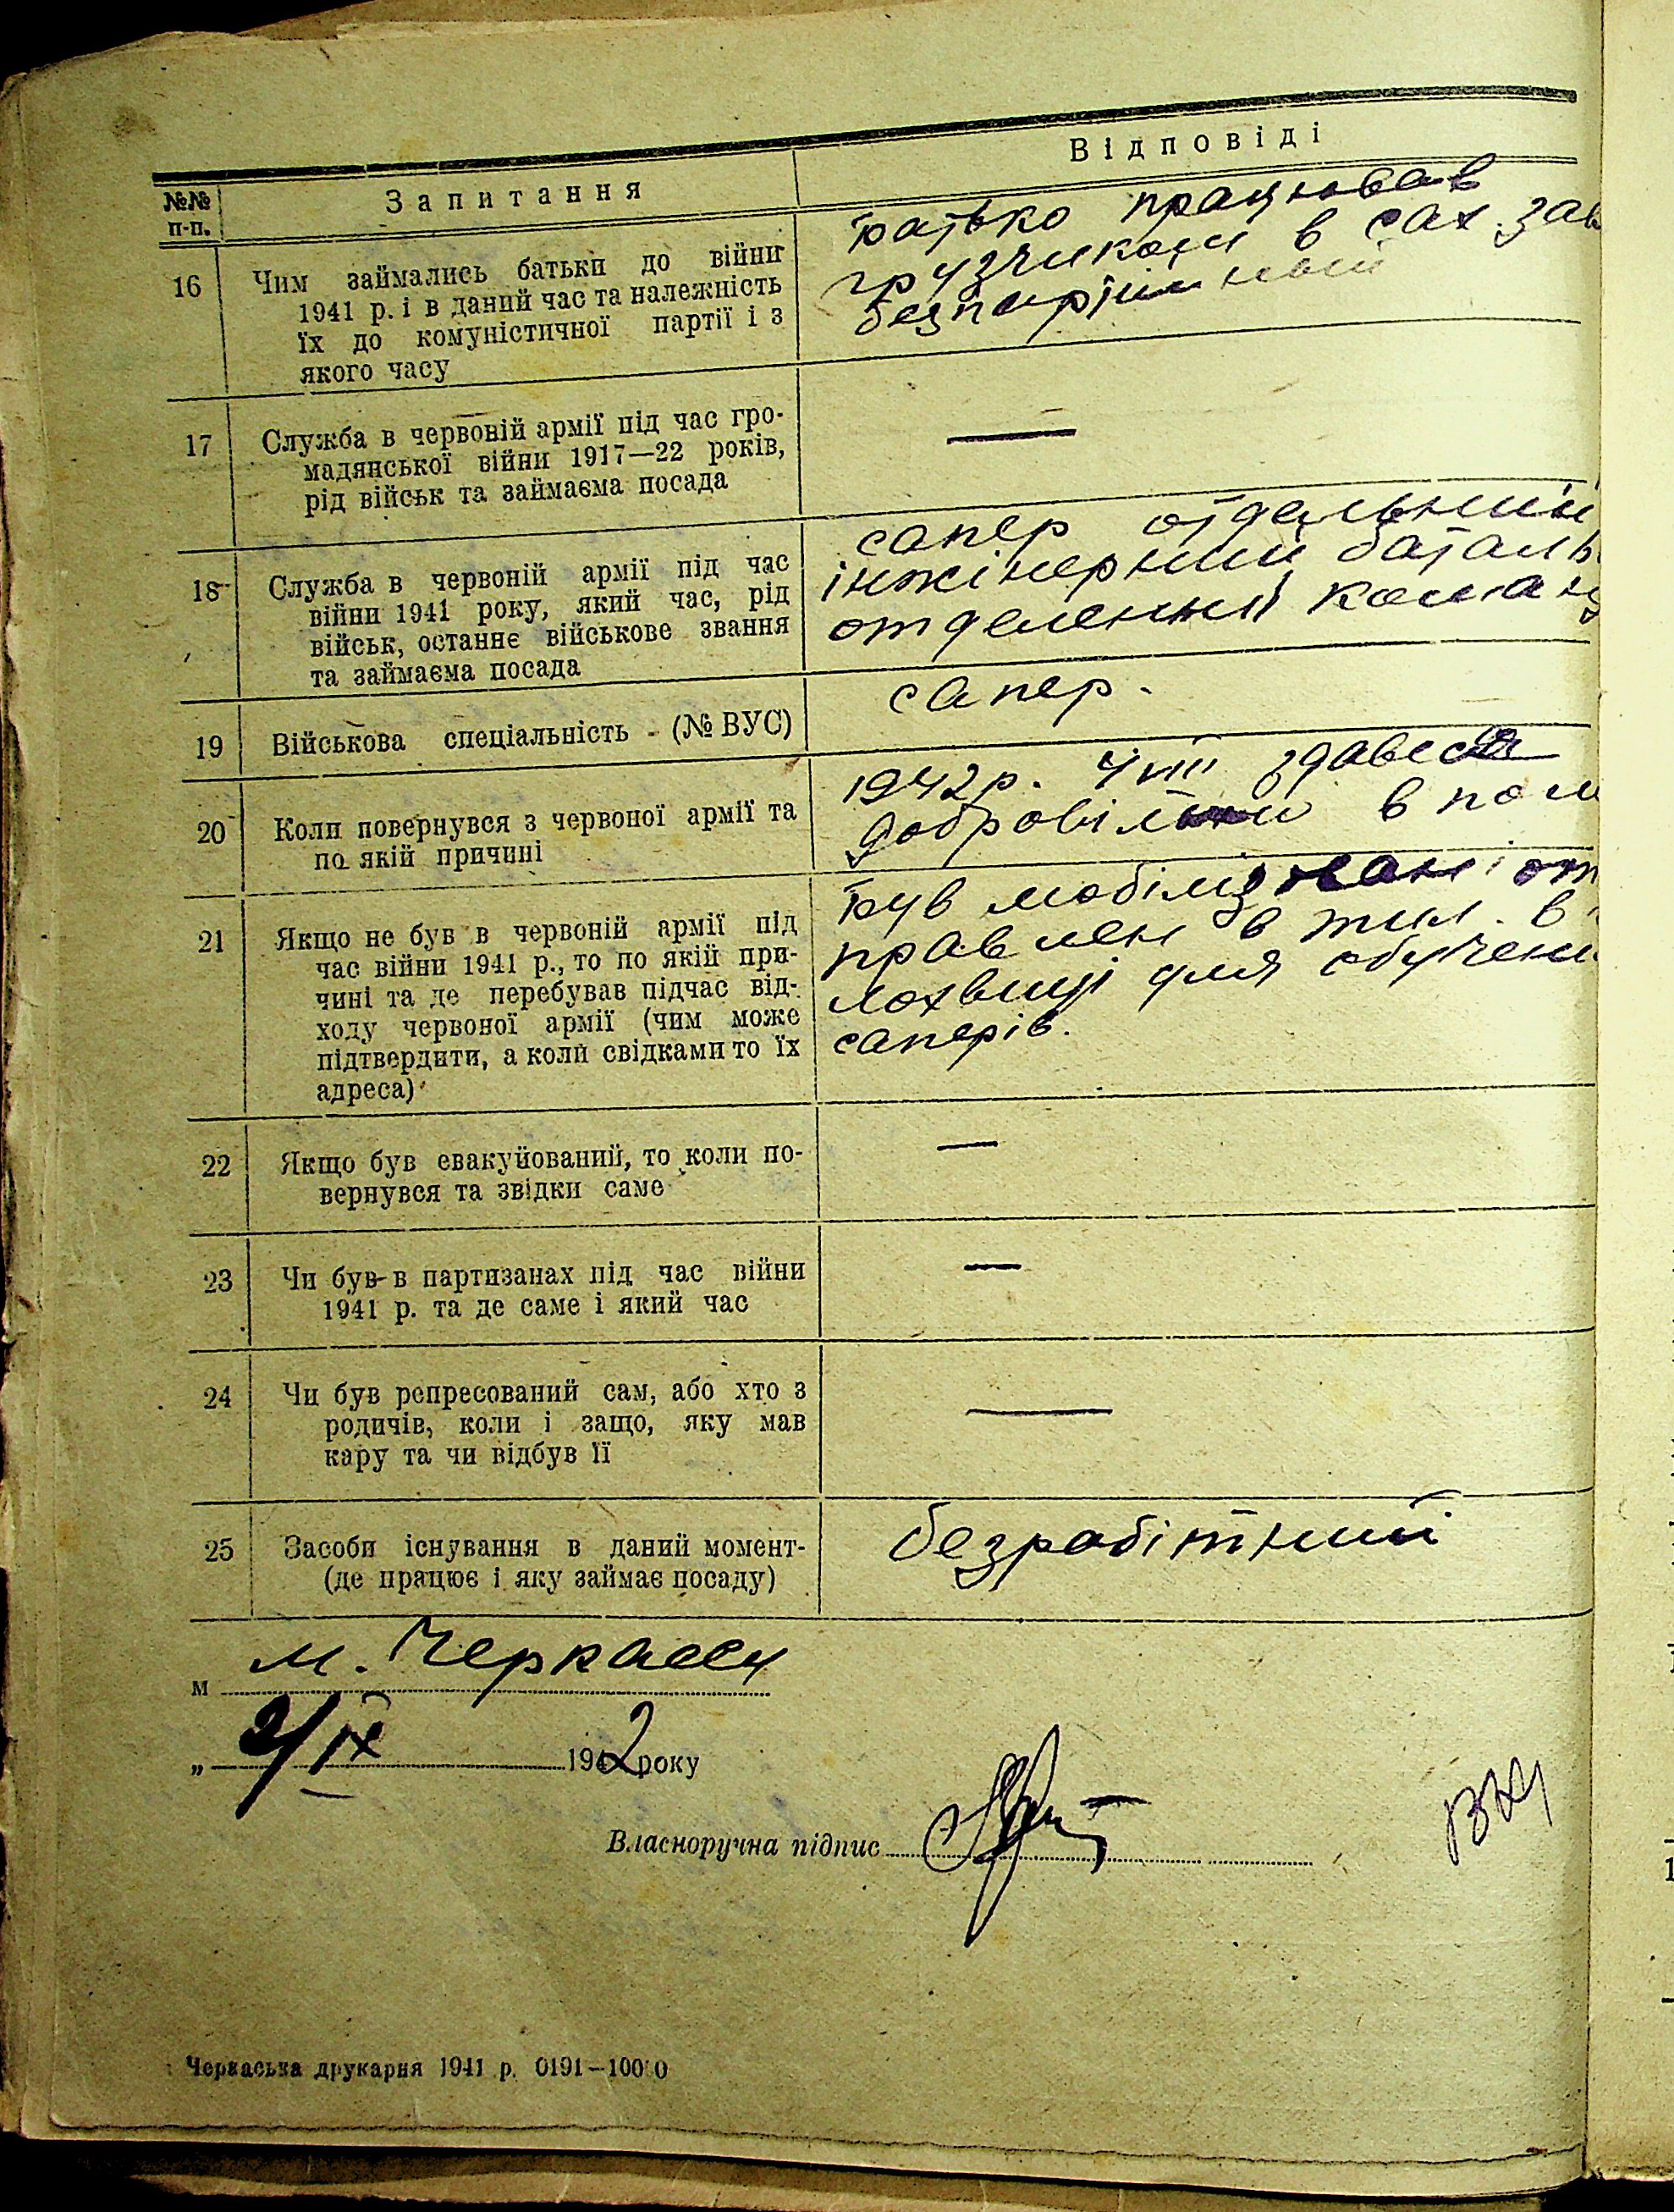 №№ п-п.
Запитання
Відповіді
16
Чим займались батьки до війни
1941 р. і в даний час та належність
їх до комуністичної партії і з
якого часу
батько працював
грузчиком в сах. зав
безпартійний
17
Служба в червоній армії під час гро-
мадянської війни 1917—22 років,
рід військ та займаєма посада
—
18
Служба в червоній армії під час
війни 1941 року, який час, рід
військ, останнє військове звання
та займаєма посада
сапер отдельний
інжінерний баталь
отделенний коман
19
Військова спеціальність - (№ ВУС)
сапер.
20
Коли повернувся з червоної армії та
по якій причині
1942 р. здався
добровільно в пол
21
Якщо не був в червоній армії під
час війни 1941 р., то по якій при-
чині та де перебував підчас від-
ходу червоної армії (чим може
підтвердити, а коли свідками то їх
адреса)
був мобілізован і от
правлен в тил. в
лохвиці для обучени
саперів.
22
Якщо був евакуйований, то коли по-
вернувся та звідки саме
—
23
Чи був в партизанах під час війни
1941 р. та де саме і який час
—
24
Чи був репресований сам, або хто з
родичів, коли і защо, яку мав
кару та чи відбув її
—
25
Засоби існування в даний момент-
(де працює і яку займає посаду)
безробітний
м м. Черкассы
„ 2/IX 1942 року
Власноручна підпис
Черкаська друкарня 1941 р. 0191—10000